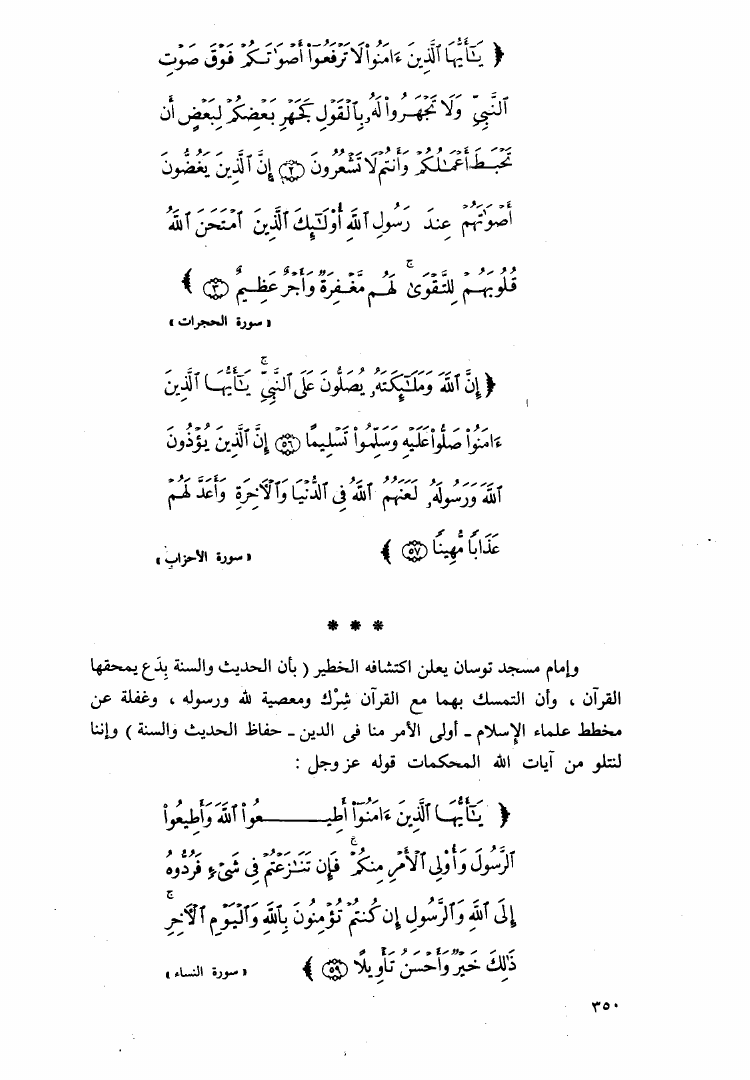 ﴿ يَٰٓأَيُّهَا ٱلَّذِينَ ءَامَنُوا۟ لَا تَرْفَعُوٓا۟ أَصْوَٰتَكُمْ فَوْقَ صَوْتِ
ٱلنَّبِىِّ وَلَا تَجْهَرُوا۟ لَهُۥ بِٱلْقَوْلِ كَجَهْرِ بَعْضِكُمْ لِبَعْضٍ أَن
تَحْبَطَ أَعْمَٰلُكُمْ وَأَنتُمْ لَا تَشْعُرُونَ ۝٢ إِنَّ ٱلَّذِينَ يَغُضُّونَ
أَصْوَٰتَهُمْ عِندَ رَسُولِ ٱللَّهِ أُو۟لَٰٓئِكَ ٱلَّذِينَ ٱمْتَحَنَ ٱللَّهُ
قُلُوبَهُمْ لِلتَّقْوَىٰ ۚ لَهُم مَّغْفِرَةٌ وَأَجْرٌ عَظِيمٌ ۝٣ ﴾
« سورة الحجرات »
﴿ إِنَّ ٱللَّهَ وَمَلَٰٓئِكَتَهُۥ يُصَلُّونَ عَلَى ٱلنَّبِىِّ ۚ يَٰٓأَيُّهَا ٱلَّذِينَ
ءَامَنُوا۟ صَلُّوا۟ عَلَيْهِ وَسَلِّمُوا۟ تَسْلِيمًا ۝٥٦ إِنَّ ٱلَّذِينَ يُؤْذُونَ
ٱللَّهَ وَرَسُولَهُۥ لَعَنَهُمُ ٱللَّهُ فِى ٱلدُّنْيَا وَٱلْءَاخِرَةِ وَأَعَدَّ لَهُمْ
عَذَابًا مُّهِينًا ۝٥٧ ﴾ « سورة الأحزاب »
* * *
وإمام مسجد توسان يعلن اكتشافه الخطير ( بأن الحديث والسنة بِدَع يمحقها
القرآن ، وأن التمسك بهما مع القرآن شِرْك ومعصية لله ورسوله ، وغفلة عن
مخطط علماء الإسلام ـ أولى الأمر منا فى الدين ـ حفاظ الحديث والسنة ) وإننا
لنتلو من آيات الله المحكمات قوله عز وجل :
﴿ يَٰٓأَيُّهَا ٱلَّذِينَ ءَامَنُوٓا۟ أَطِيعُوا۟ ٱللَّهَ وَأَطِيعُوا۟
ٱلرَّسُولَ وَأُو۟لِى ٱلْأَمْرِ مِنكُمْ ۖ فَإِن تَنَٰزَعْتُمْ فِى شَىْءٍ فَرُدُّوهُ
إِلَى ٱللَّهِ وَٱلرَّسُولِ إِن كُنتُمْ تُؤْمِنُونَ بِٱللَّهِ وَٱلْيَوْمِ ٱلْءَاخِرِ ۚ
ذَٰلِكَ خَيْرٌ وَأَحْسَنُ تَأْوِيلًا ۝٥٩ ﴾ « سورة النساء »
٣٥٠